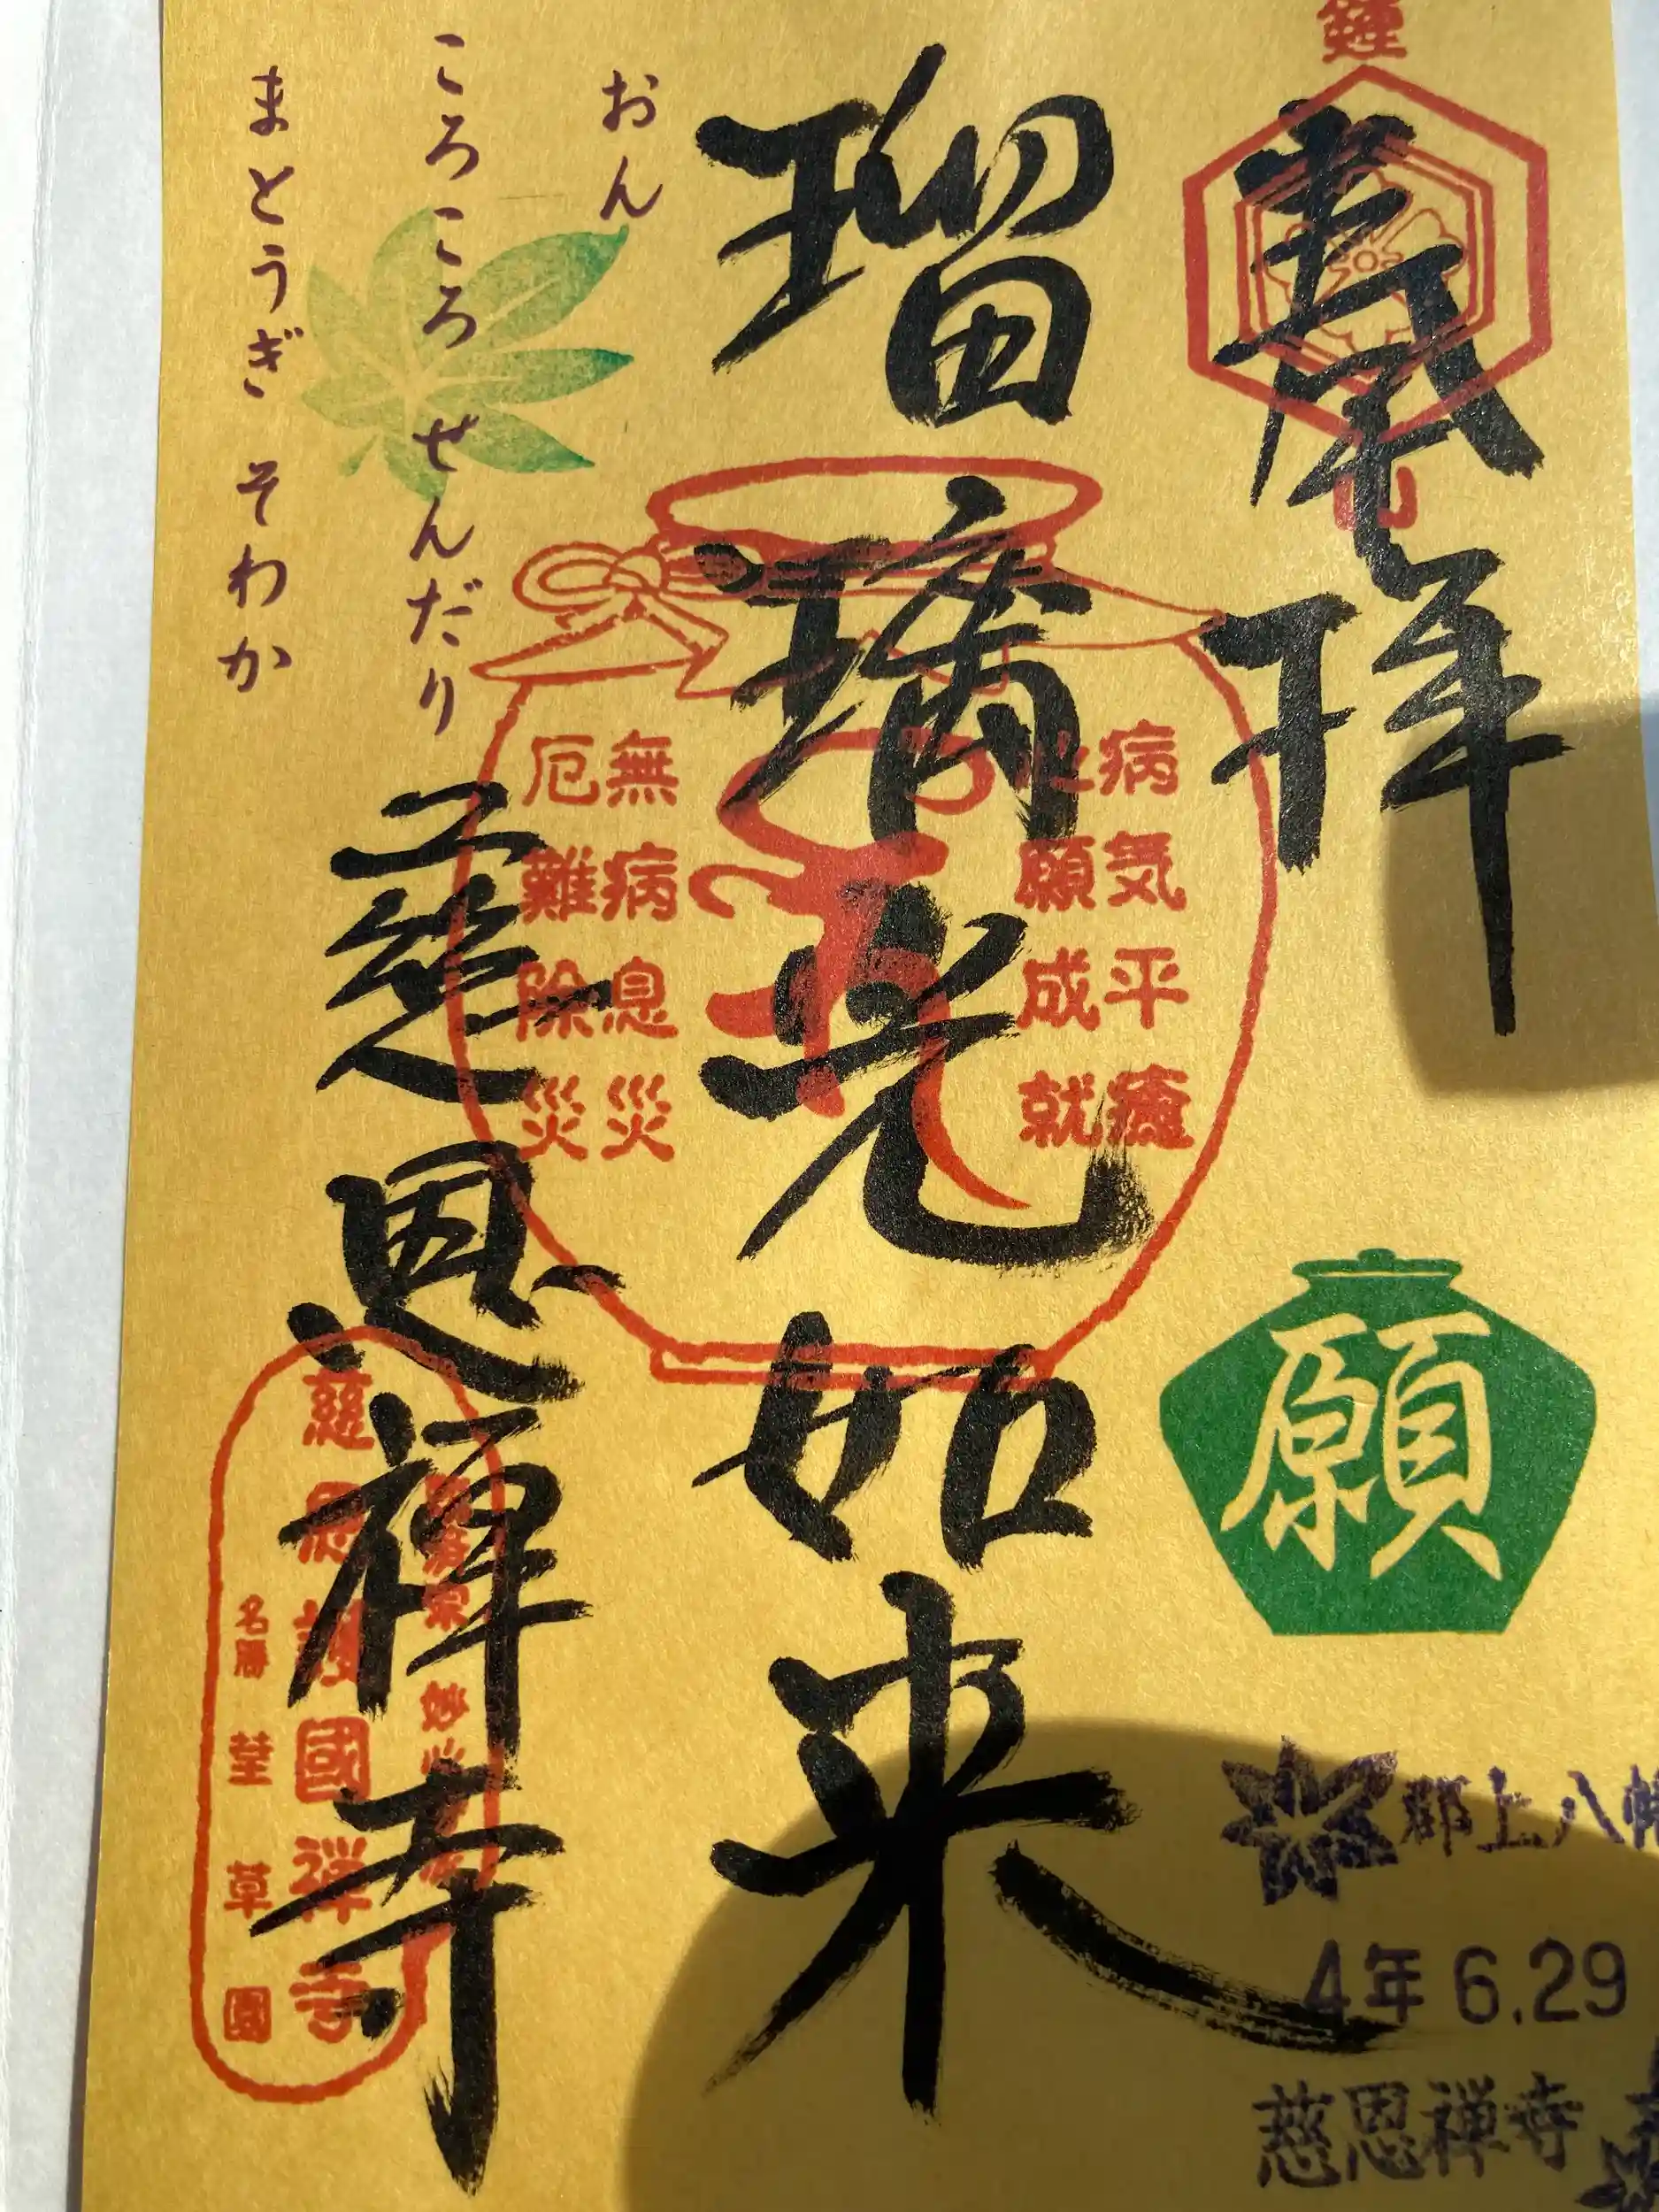 鐘
山
奉拝
瑠璃光如来
慈恩禅寺
おん
ころころ せんだり
まとうぎ そわか
病気平癒
願成就
無病息災
厄難除災
願
慈恩護國禅寺
名勝 荎草園
郡上八幡
4年 6.29
慈恩禅寺